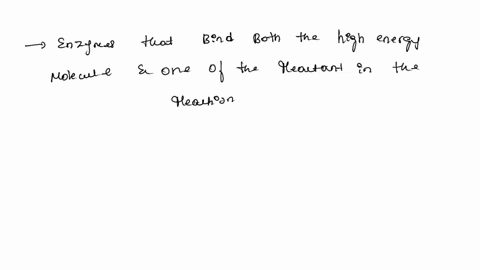 → Enzymes that Bind Both the high energy
Molecule & one of the Reactant in the
Reaction